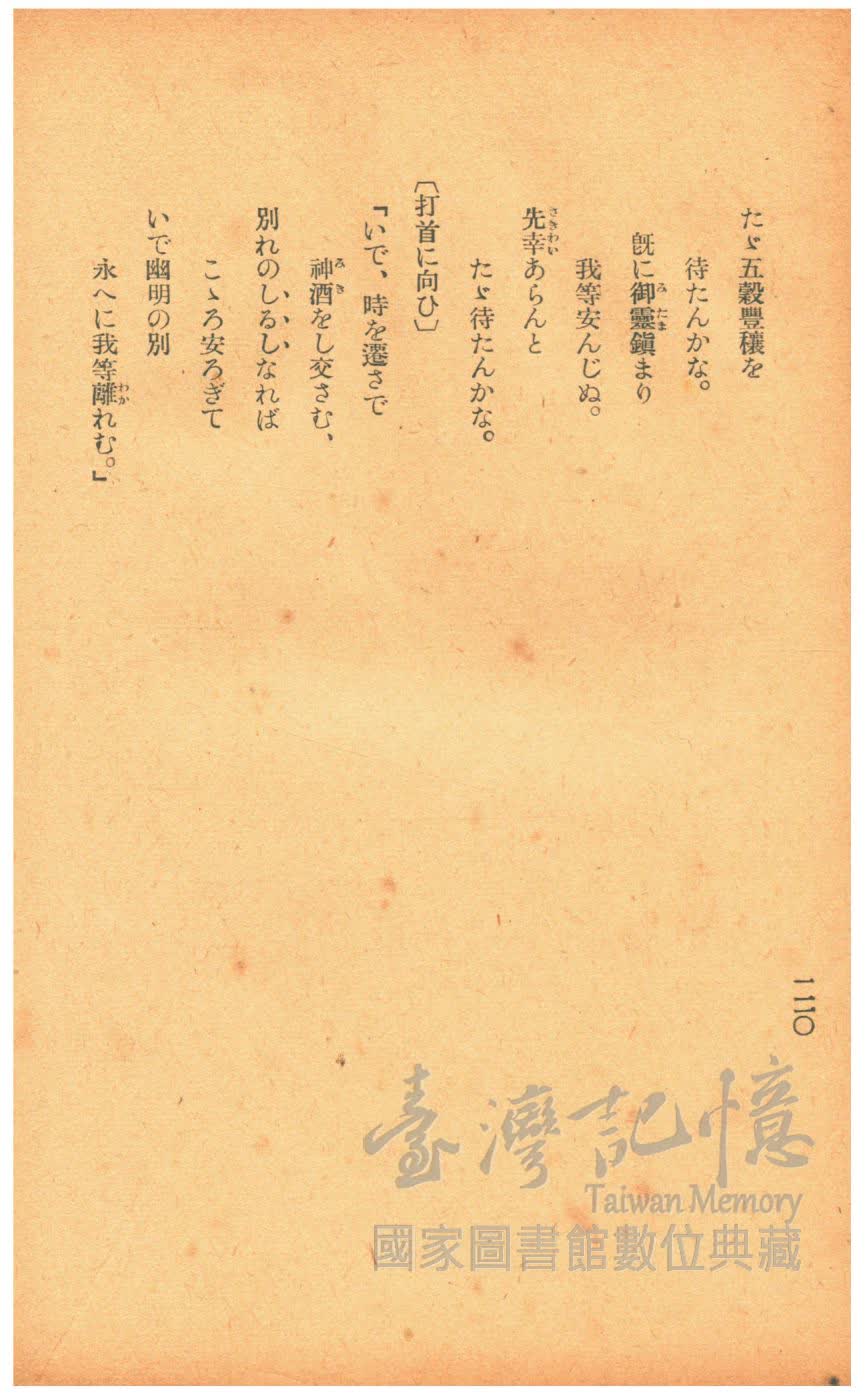 たゞ五穀豐穰を
待たんかな。
既に御靈鎭まり
我等安んじぬ。
先幸あらんと
たゞ待たんかな。
〔打首に向ひ〕
「いで、時を遷さで
神酒をし交さむ、
別れのしるしなれば
こゝろ安ろぎて
いで幽明の別
永へに我等離れむ。」
一二〇
臺灣記憶
Taiwan Memory
國家圖書館數位典藏